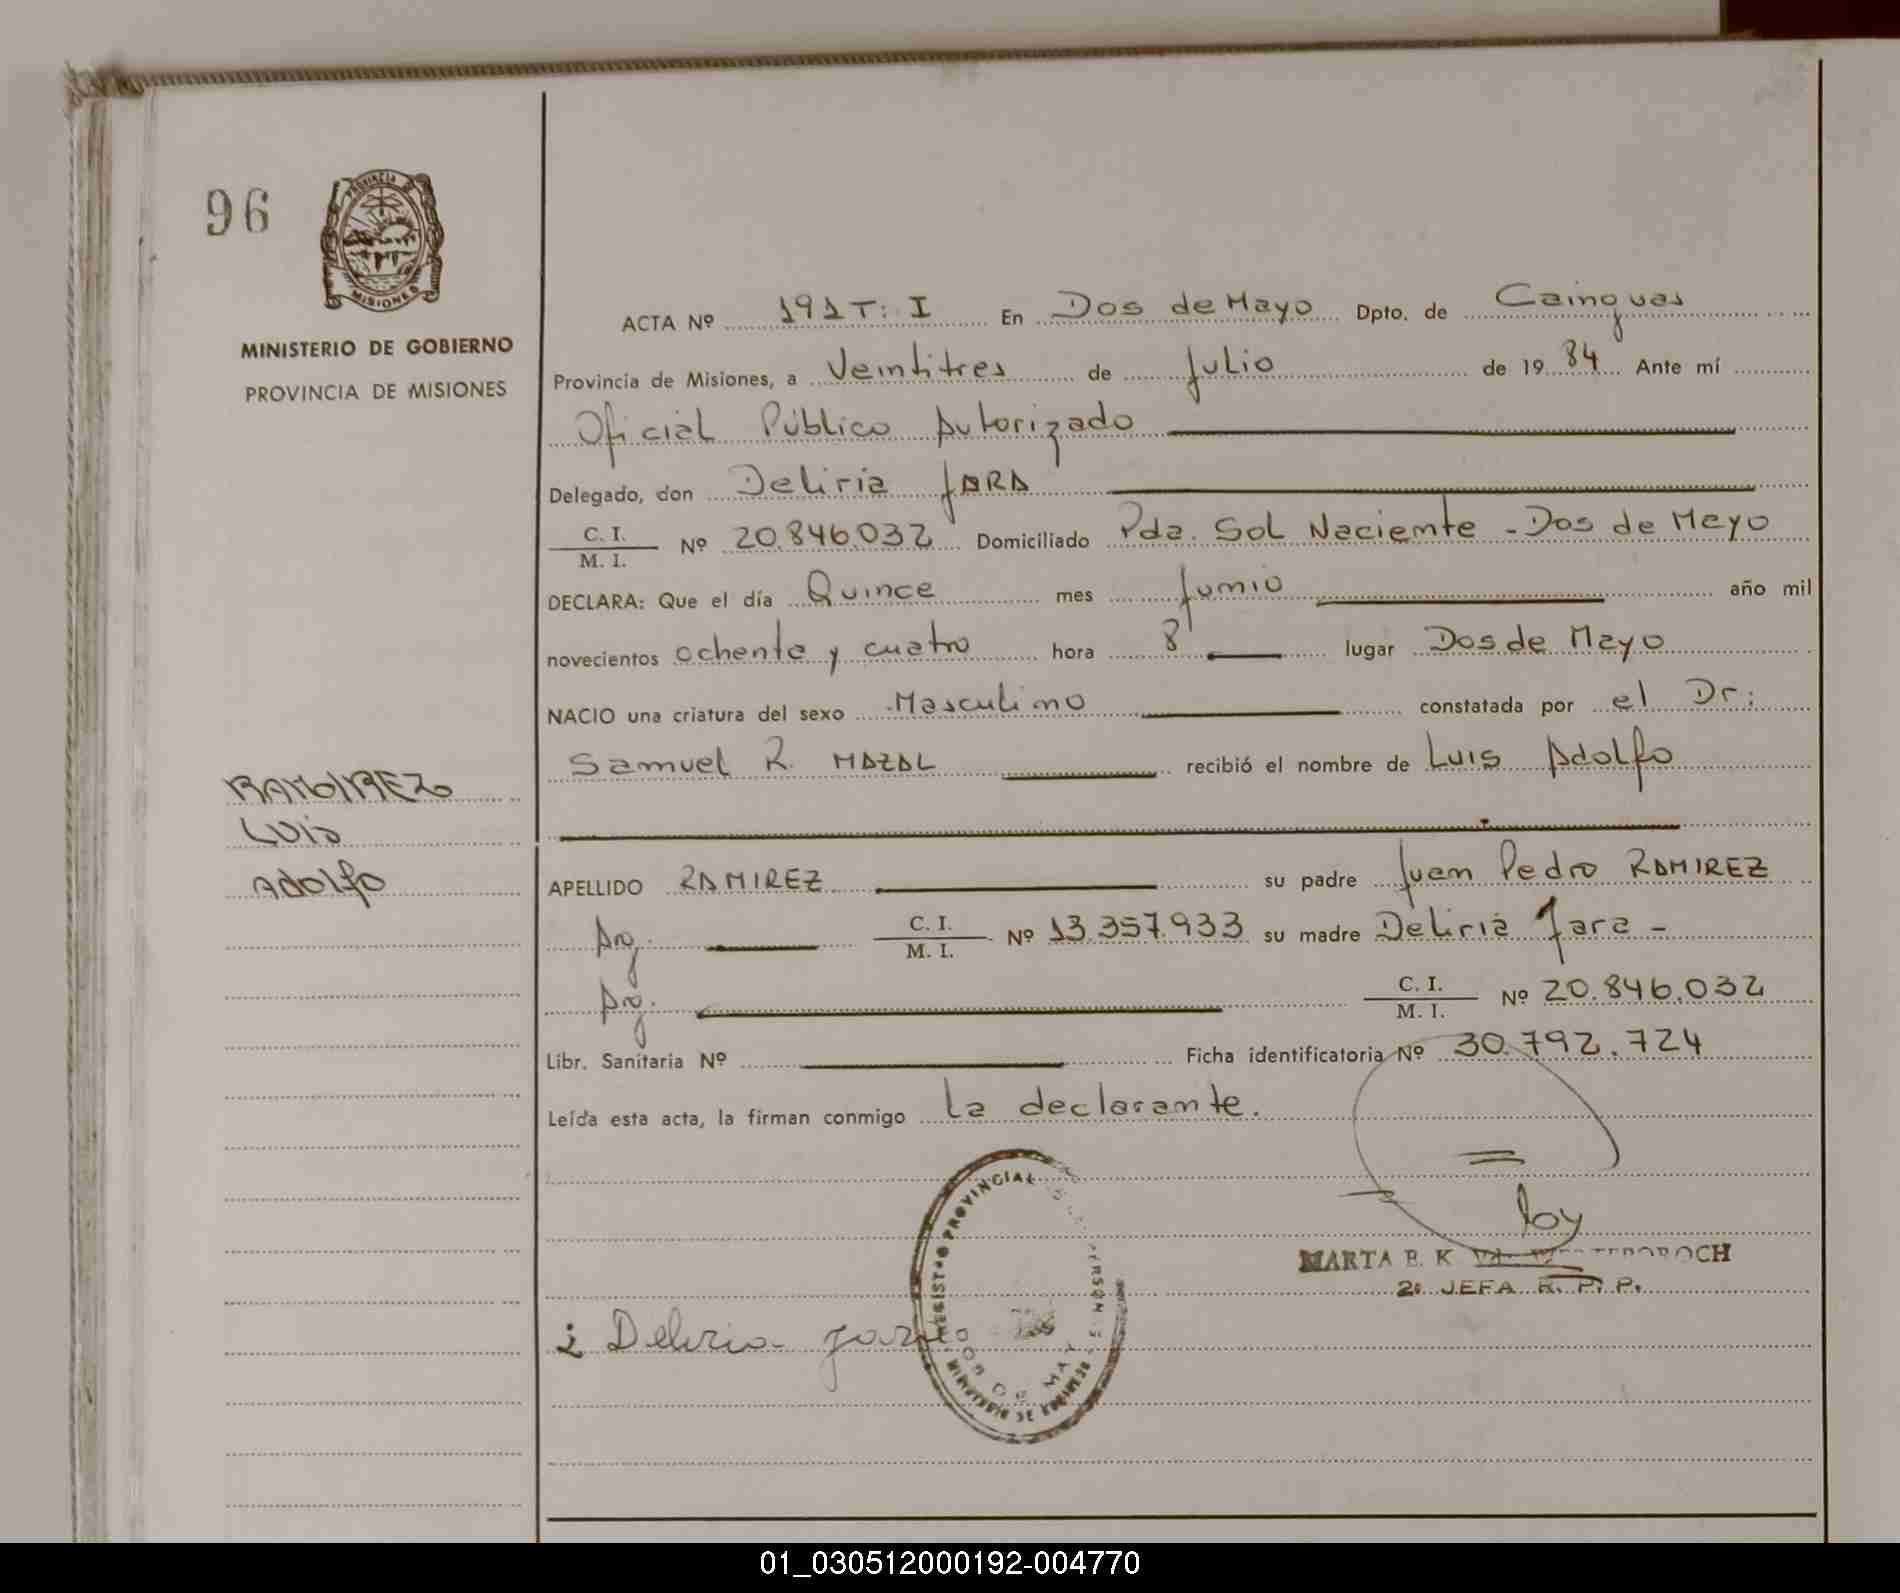 96
PROVINCIA DE
MISIONES
MINISTERIO DE GOBIERNO
PROVINCIA DE MISIONES
RAMIREZ
Luis
Adolfo
ACTA Nº 191 T: I En Dos de Mayo Dpto. de Cainguas
Provincia de Misiones, a Veintitres de Julio de 1984 Ante mí
Oficial Público Autorizado
Delegado, don Deliria JARA
C. I. / M. I. Nº 20.846.032 Domiciliado Pda. Sol Naciente - Dos de Mayo
DECLARA: Que el día Quince mes Junio año mil
novecientos ochenta y cuatro hora 8 lugar Dos de Mayo
NACIO una criatura del sexo Masculino constatada por el Dr:
Samuel R. MAZAL recibió el nombre de Luis Adolfo
APELLIDO RAMIREZ su padre Juan Pedro RAMIREZ
Arg. C. I. / M. I. Nº 13.357.933 su madre Deliria Jara -
Arg. C. I. / M. I. Nº 20.846.032
Libr. Sanitaria Nº Ficha identificatoria Nº 30.792.724
Leída esta acta, la firman conmigo la declarante.
PROVINCIAL
MARTA E. K
2º JEFA R. P. P.
Deliria Jara
DOS DE MAYO
01_030512000192-004770